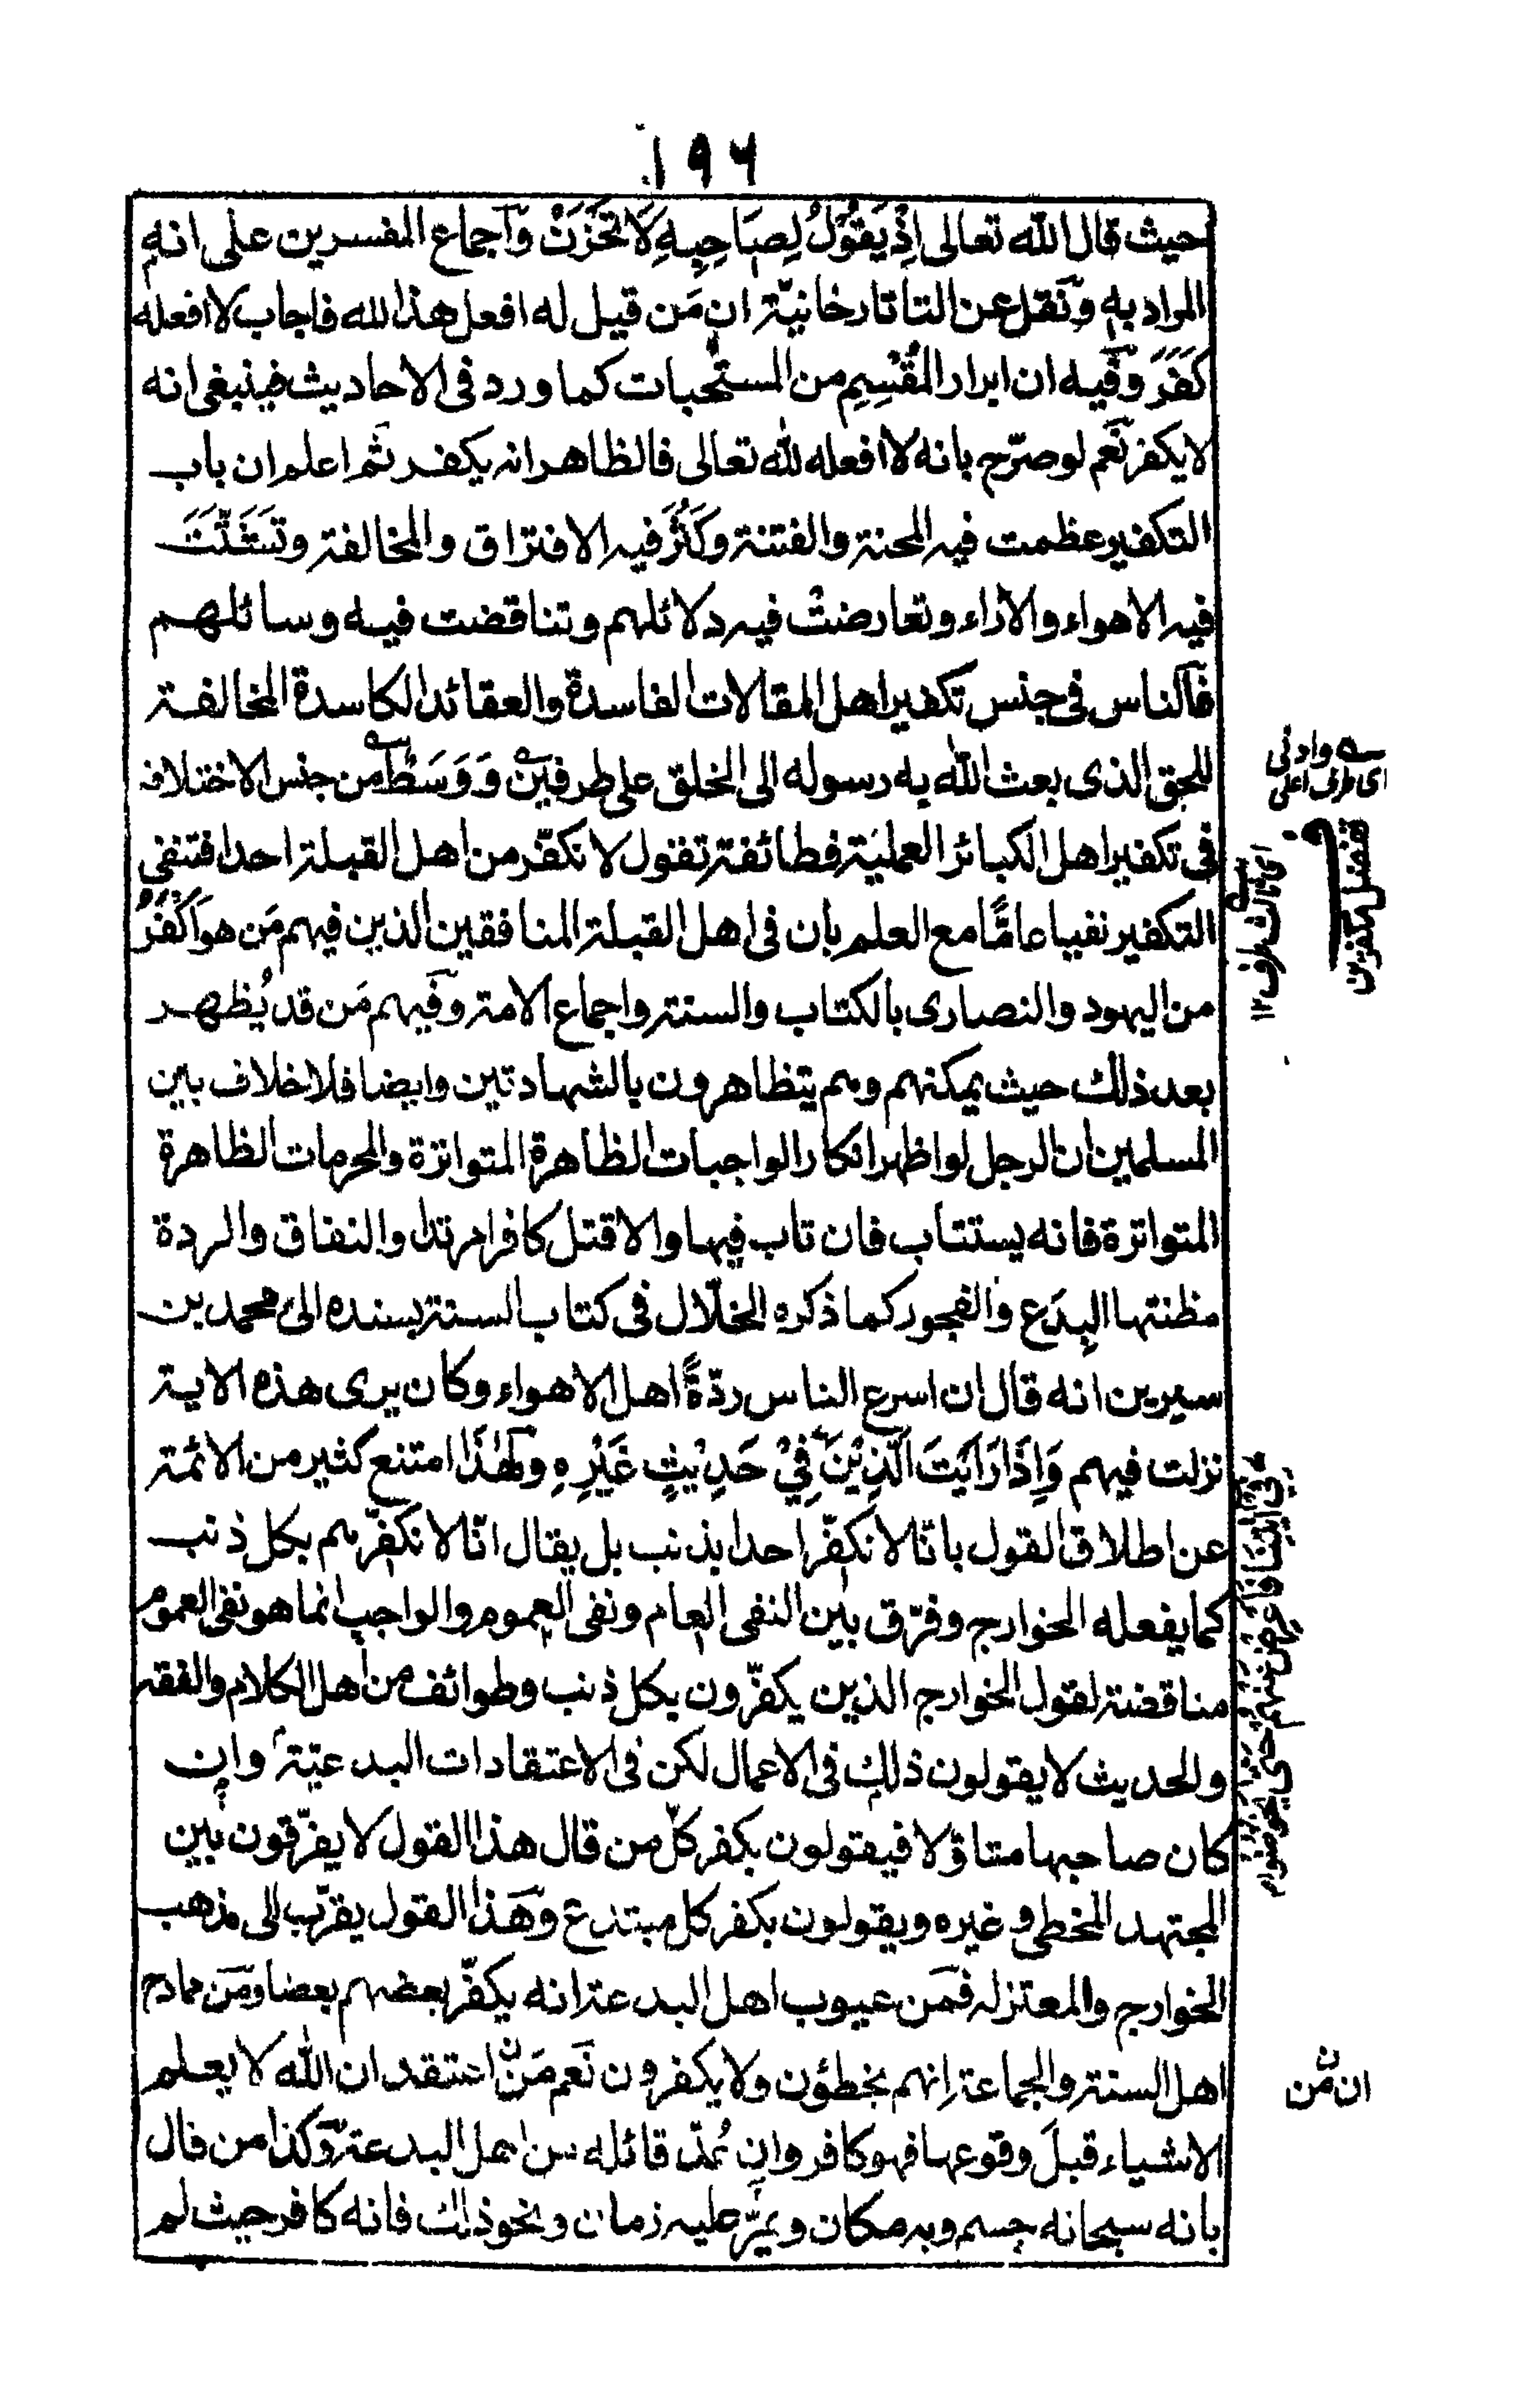 ١٩٦
حيث قال الله تعالى اِذْ يَقُوْلُ لِصَاحِبِهٖ لَا تَحْزَنْ وآجماع المفسرين على انه
المراد به ونقل عن التاتارخانيّة ان مَن قيل له افعل هذا لله فاجاب لا افعله
كَفَرَ وفيه ان ابرار المُقْسِمِ من المستحبات كما ورد فى الاحاديث فينبغى انه
لا يكفر نَعم لو صرّح بانه لا افعله لله تعالى فالظاهر انه يكفر ثم اعلم ان باب
التكفير عظمت فيه المحنة والفتنة وكَثُرَ فيه الافتراق والمخالفة وتَشَتَّتَتْ
فيه الاهواء والاٰراء وتعارضتْ فيه دلائلهم وتناقضت فيه وسائلهم
فالناس فى جنس تكفير اهل المقالات الفاسدة والعقائد الكاسدة المخالفة
للحق الذى بعث الله به رسوله الى الخلق على طرفين وَ وَسَطٍ من جنس الاختلاف
فى تكفير اهل الكبائر العمليَة فطائفة تقول لا نكفّر من اهل القبلة احدا فتنفى
التكفير نفيا عامًّا مع العلم بان فى اهل القبلة المنافقين الذين فيهم مَن هو اَكْفَرُ
من اليهود والنصارى بالكتاب والسنة واجماع الامة وفيهم مَن قد يُظهر
بعد ذلك حيث يمكنهم وهم يتظاهرون بالشهادتين وايضا فلا خلاف بين
المسلمين ان الرجل لو اظهر انكار الواجبات الظاهرة المتواترة والمحرمات الظاهرة
المتواترة فانه يستتاب فان تاب فيها والا قتل كافرا مرتدا والنفاق والردة
مظنتها البِدَع والفجور كما ذكره الخلّال فى كتاب السنة بسنده الى محمد بن
سيرين انه قال ان اسرع الناس ردّةً اهل الاهواء وكان يرى هذه الاية
نزلت فيهم وَاِذَا رَاَيْتَ الَّذِيْنَ فِيْ حَدِيْثٍ غَيْرِهٖ ولهٰذا امتنع كثير من الائمة
عن اطلاق القول بانّا لا نكفّر احدا بذنب بل يقال انّا لا نكفّرهم بكل ذنب
كما يفعله الخوارج وفرّق بين النفى العام ونفى العموم والواجب انما هو نفى العموم
مناقضة لقول الخوارج الذين يكفّرون بكل ذنب وطوائف من اهل الكلام والفقه
والحديث لا يقولون ذلك فى الاعمال لكن فى الاعتقادات البدعيّة وان
كان صاحبها متاوّلا فيقولون بكفر كلّ من قال هذا القول لا يفرّقون بين
المجتهد المخطى وغيره ويقولون بكفر كل مبتدع وهذا القول يقرّب الى مذهب
الخوارج والمعتزله فمن عيوب اهل البدعة انه يكفّر بعضهم بعضا ومن ممادح
اهل السنة والجماعة اِنهم يخطؤن ولا يكفرون نَعم مَنْ اعتقد ان الله لا يعلم
الاشياء قبلَ وقوعها فهو كافر وان عُدّ قائله من اهل البدعة وكذا من قال
بانه سبحانه جسم وبه مكان ويمرّ عليه زمان ونحو ذلك فانه كافر حيث لم
وادنى
اى طرف اعلى
اى ثالث طرف ١٢
فى ايتنا فاعرض عنهم حتى يخوضوا
ان من